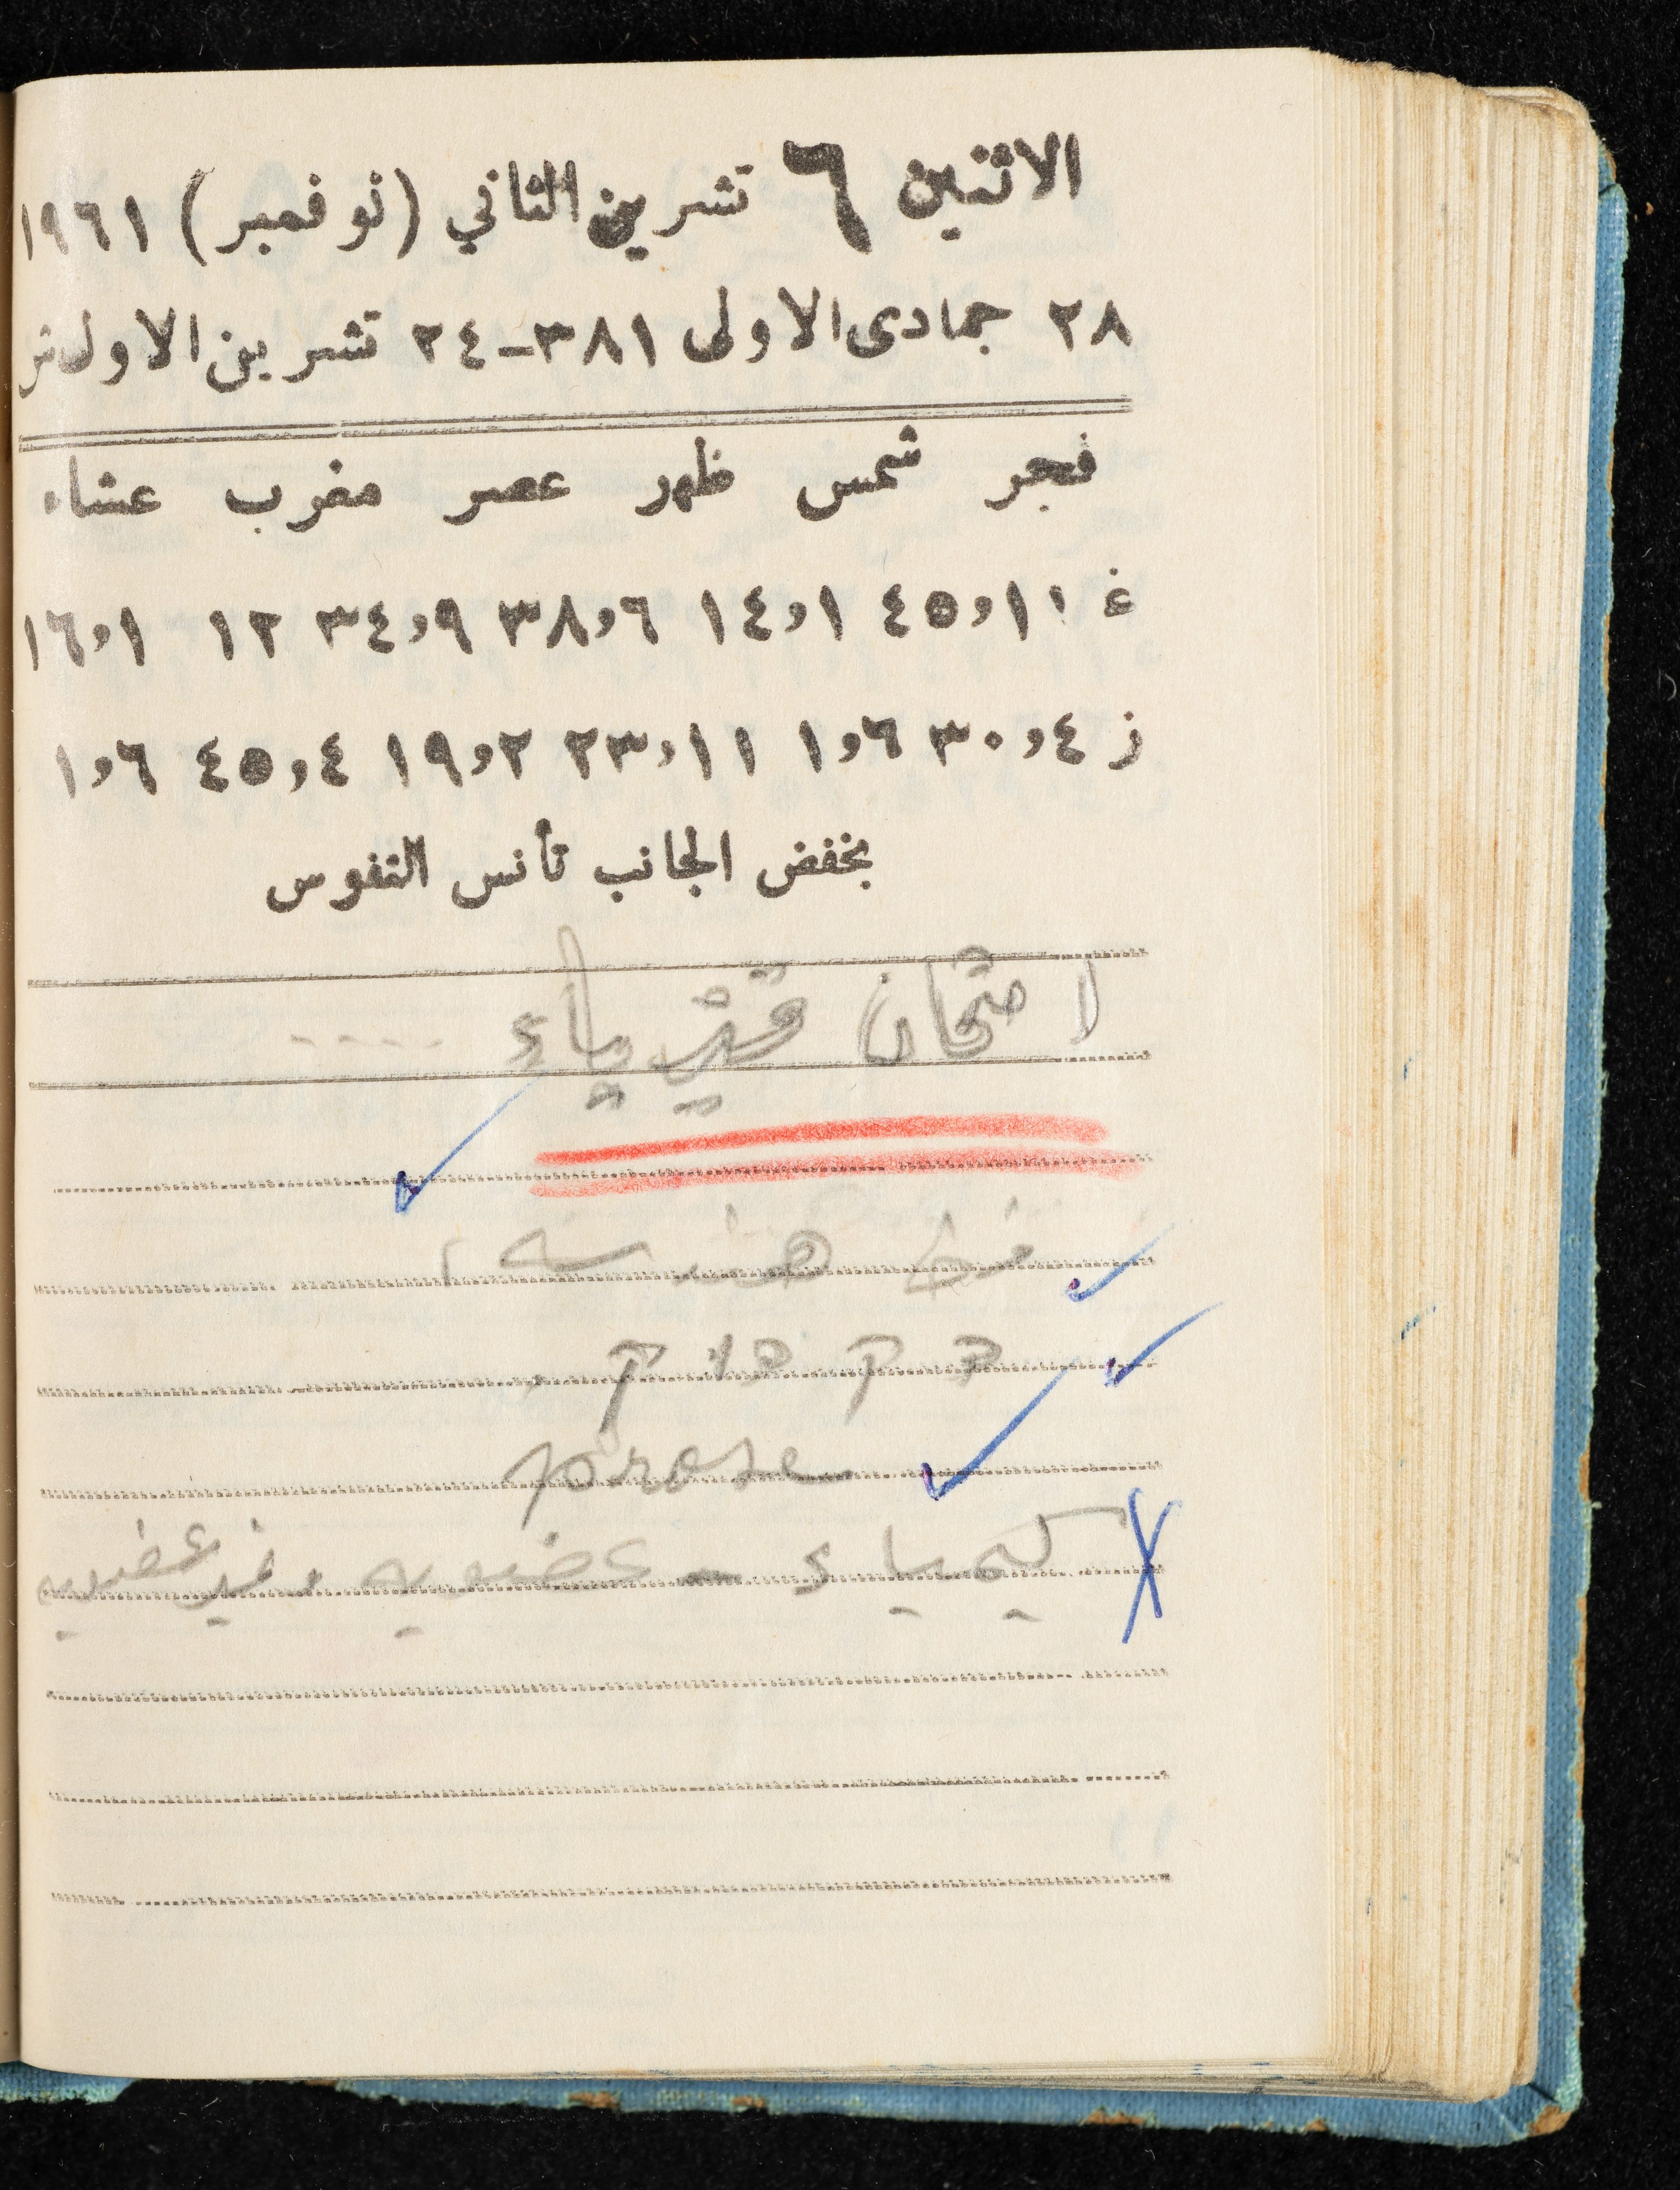 الاثنين ٦ تشرين الثاني (نوفمبر) ١٩٦١
٢٨ جمادى الاولى ٣٨١-٢٤ تشرين الاول ش
فجر شمس ظهر عصر مغرب عشاء
غ ٤٥,١١ ١٤,١ ٣٨,٦ ٣٤,٩ ١٢ ١٦,١
ز ٣٠,٤ ١,٦ ٢٣,١١ ١٩,٢ ٤٥,٤ ١,٦
بخفض الجانب تأنس النفوس
امتحان فيزياء ....
هندسه
prose
كيمياء - عضويه وغير عضويه